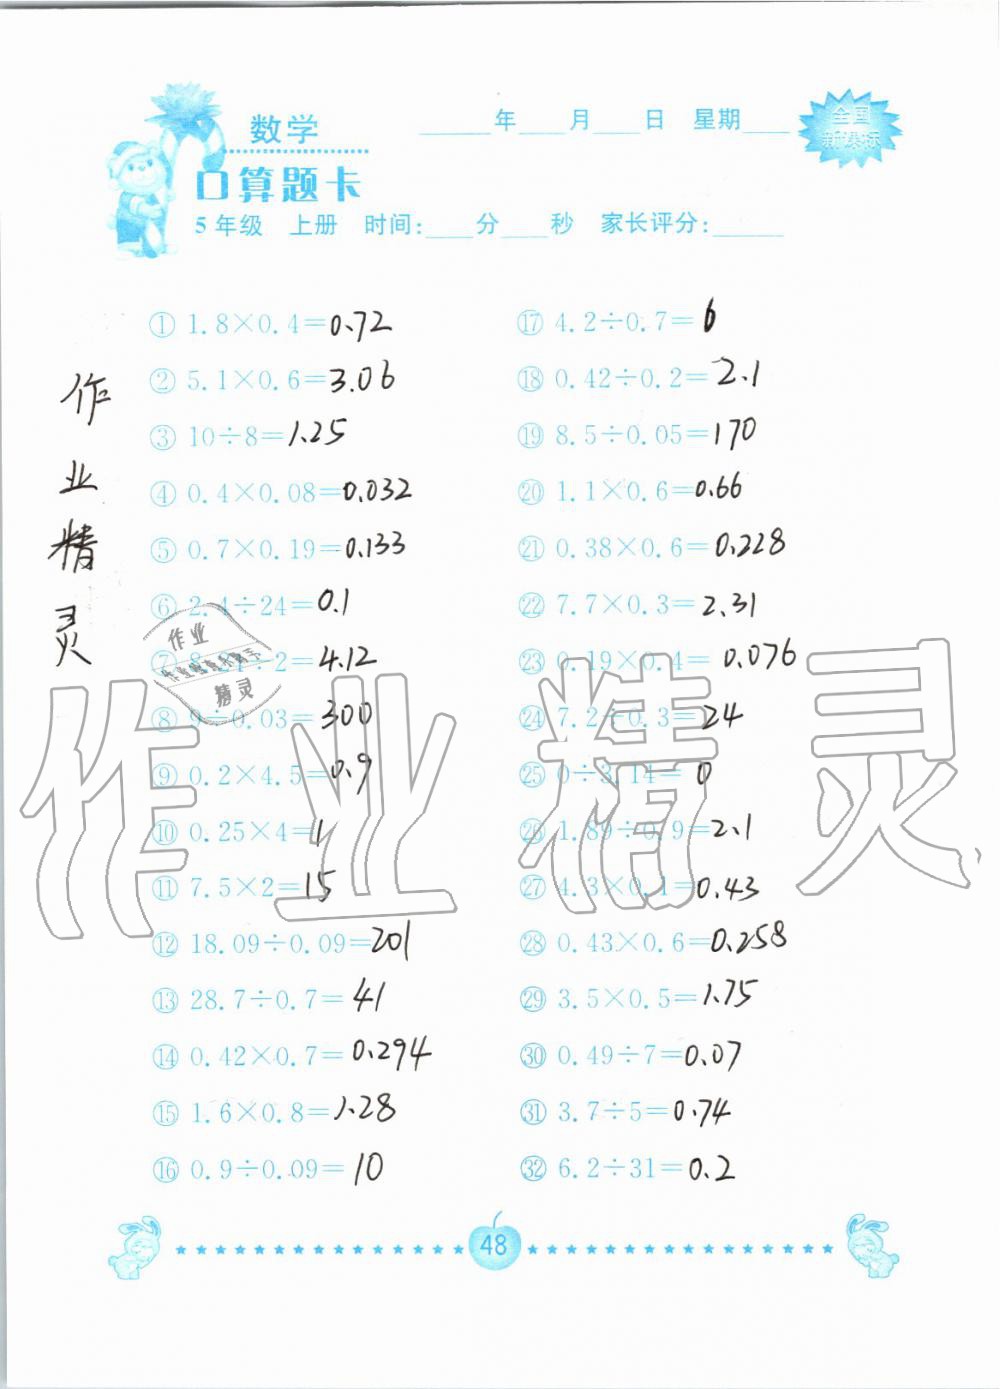 数学
口算题卡
年 月 日 星期
全国
新课标
5年级 上册 时间: 分 秒 家长评分:
① 1.8×0.4=0.72
② 5.1×0.6=3.06
③ 10÷8=1.25
④ 0.4×0.08=0.032
⑤ 0.7×0.19=0.133
⑥ 2.4÷24=0.1
⑦ 8.24÷2=4.12
⑧ 9÷0.03=300
⑨ 0.2×4.5=0.9
⑩ 0.25×4=1
⑪ 7.5×2=15
⑫ 18.09÷0.09=201
⑬ 28.7÷0.7=41
⑭ 0.42×0.7=0.294
⑮ 1.6×0.8=1.28
⑯ 0.9÷0.09=10
⑰ 4.2÷0.7=6
⑱ 0.42÷0.2=2.1
⑲ 8.5÷0.05=170
⑳ 1.1×0.6=0.66
㉑ 0.38×0.6=0.228
㉒ 7.7×0.3=2.31
㉓ 0.19×0.4=0.076
㉔ 7.2÷0.3=24
㉕ 0÷3.14=0
㉖ 1.89÷0.9=2.1
㉗ 4.3×0.1=0.43
㉘ 0.43×0.6=0.258
㉙ 3.5×0.5=1.75
㉚ 0.49÷7=0.07
㉛ 3.7÷5=0.74
㉜ 6.2÷31=0.2
作业精灵
作业
精灵
作业精灵
48